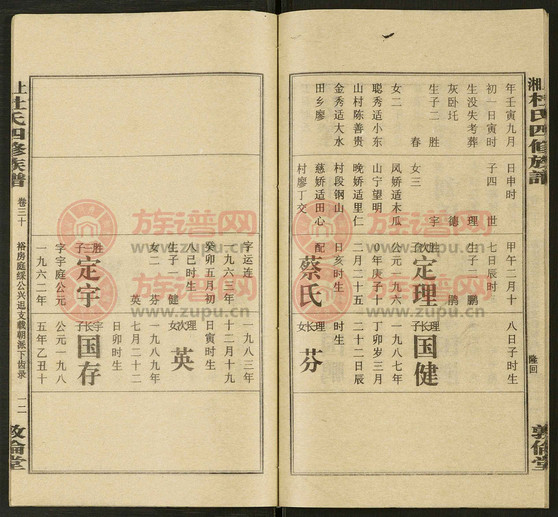 湘
杜氏四修族譜
隆回
敦倫堂
年壬寅九月
初一日寅时
生没失考葬
灰卧圫
生子二 胜
春
女二
聪秀适小东
山村陈善贵
金秀适大水
田乡廖
日申时
子四 世
理
德
宇
女三
凤娇适木瓜
山宁望明
晚娇适里仁
村段钢山
慈娇适田心
村廖丁交
甲午二月十
七日辰时
生子二 鹏
鹃
胜次子 定理
公元一九六
0年庚子十
二月二十五
日亥时生
配 蔡氏
八日子时生
理长子 国健
一九八七年
丁卯岁三月
二十二日辰
时生
理长女 芬
一九八三年
十二月十九
日寅时生
理次女 英
一九八九年
七月二十二
日卯时生
宇长子 国存
公元一九八
五年乙丑十
字运连
一九六三年
癸卯五月初
八巳时生
生子一 健
女二 芬
英
胜三子 定宇
字宇庭公元
一九六二年
上
杜氏四修族譜
卷三十
裕房庭绥公兴迟支载朝派下齿录
一二
敦倫堂
族谱网
www.zupu.cn
族谱网
www.zupu.cn
族谱网
www.zupu.cn
族谱网
www.zupu.cn